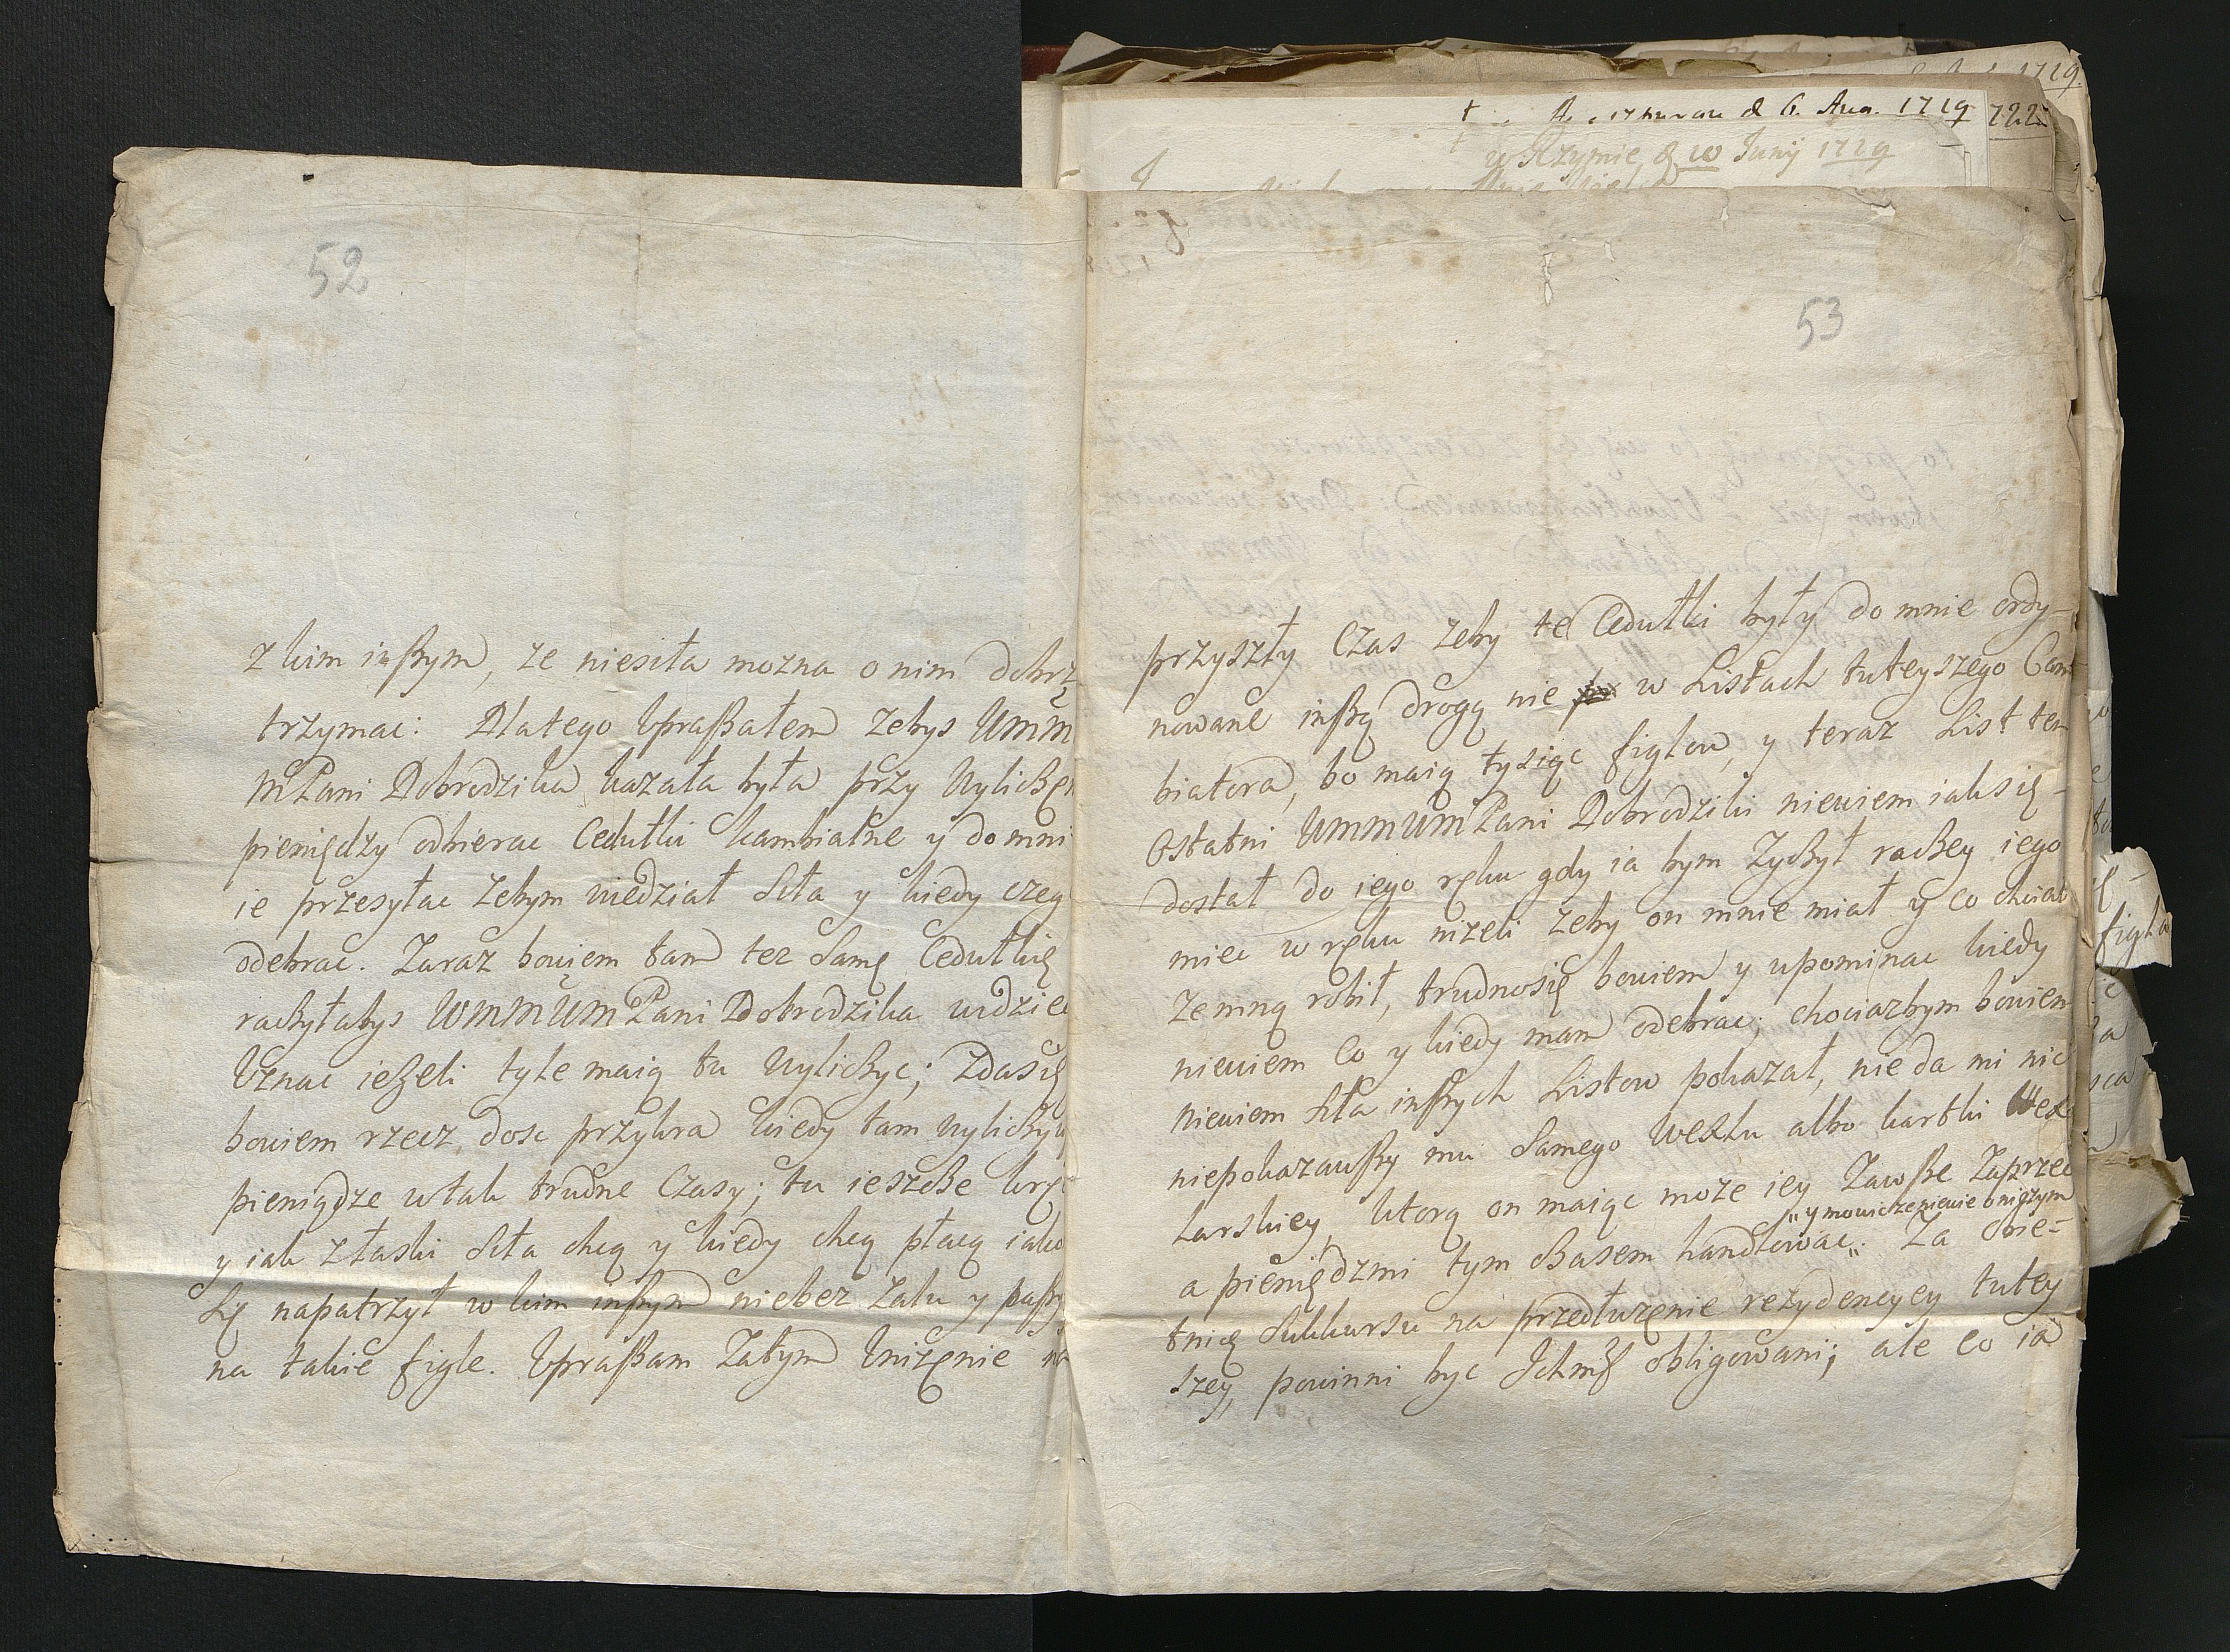 1729
d 6. Aug. 1729
722
w Rzymie d 10 Junÿ 1729
52
z kim inßym, ze niesiła mozna o nim dobrz
trzymac: Dlatego Upraßałem zebys Wmm
MPani Dobrodzika kazała była przy Wyliczę
pieniędzy odbierac Cedułki kambialne y do mni
ie przesyłac zebym wiedział siła y kiedy czeg
odebrac. Zaraz bowiem tam tez samę Cedułkię
raczyłabys WMMWMPani Dobrodzika widziec
Uznac iezeli tyle maią tu Wyliczyc; zdasię
bowiem rzecz dosc przykra kiedy tam wyliczy
pieniądze wtak trudne Czasy; tu ieszcze krę
y iak złaski siła chcą y kiedy chcą płacą iako
Lę napatrzył w kim inßym niebez zalu y paßy
na takie figle. Upraßam Zatym Unizęnie na
53
przyszły Czas zeby te Cedułki były do mnie ordy-
nowane inßą drogą nie w Listach tuteyszego Cam
biatora, bo maią tysiąc figlow, y teraz List ten
Ostatni WMMWMPani Dobrodziki niewiem iaksię-
dostał do iego ręku gdy ia bym Zyczył raczey iego
miec w ręku nizeli zeby on mnie miał y co chciał
zemną robił, trudnosię bowiem y upominac kiedy
niewiem Co y kiedy mam odebrac; chociazbym bowiem
niewiem siła inßych Listow pokazał, nie da mi nic
niepokazawßy mu samego Wexlu albo kartki Wex
Larskiey, ktorą on maiąc moze iey Zawße Zaprzec
„y mowic ze niewie oniczym
a pieniędzmi tym czasem handlowac„. Za Swie-
tnię Sukkursu na przedłuzęnie rezydencyey tutey
szey, powinni byc Ichmß obligowani; ale co ia
figla